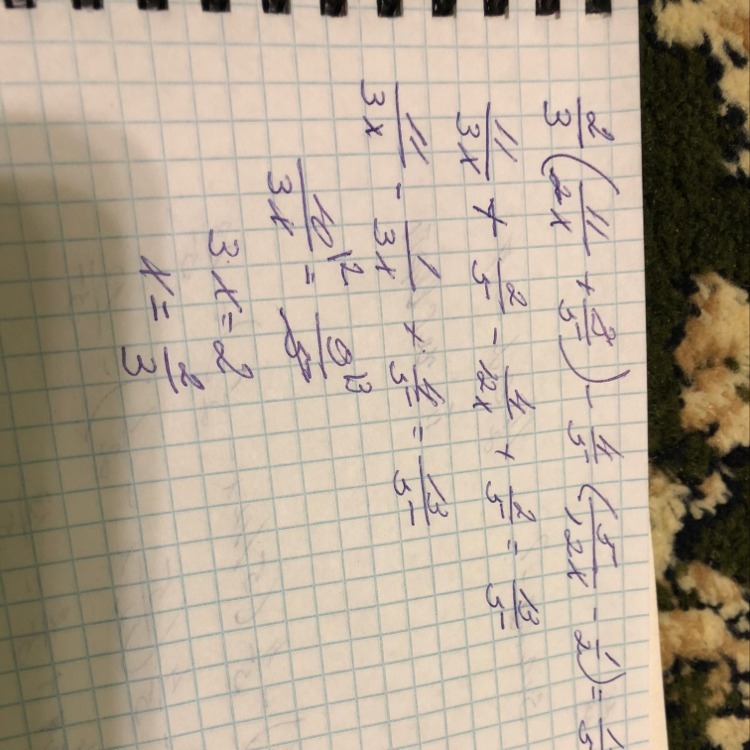 2/3 (11/2x + 3/5) - 4/5 (5/12x - 1/2) =
11/3x + 2/5 - 4/12x + 2/5 = 13/5
11/3x - 1/3x + 4/5 = 13/5
10/3x = 9/5
3·x = 2
x = 2/3